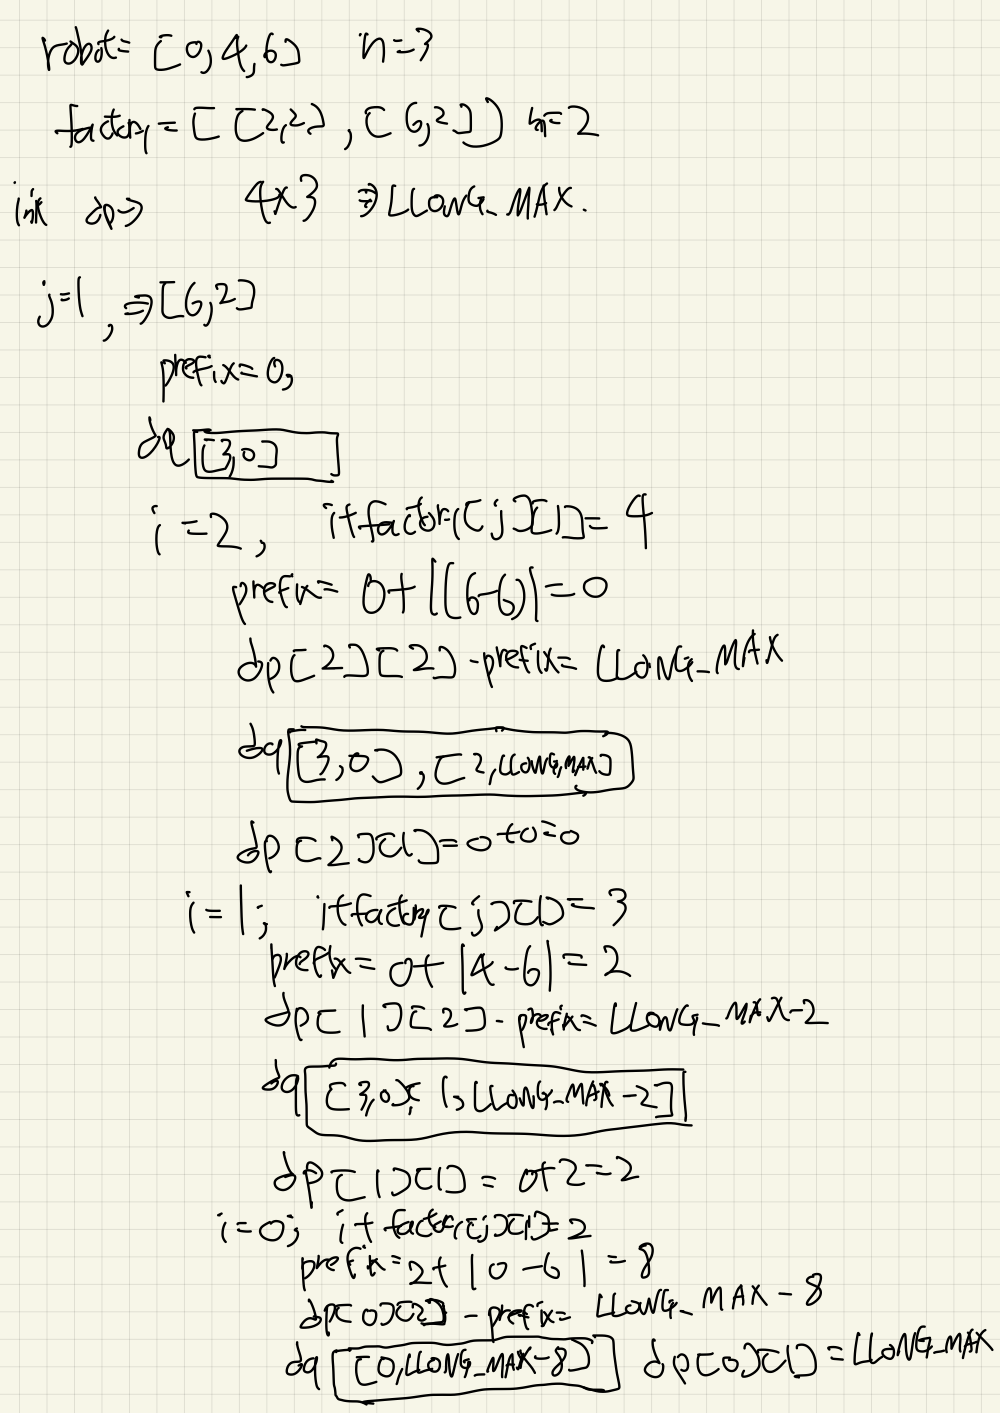 robot= [0,4,6] n=3
factory= [[2,2], [6,2]] m=2
init dp→ 4×3 ⇒LLONG_MAX.
j=1, ⇒[6,2]
prefix=0,
dq [3,0]
i=2, i+factory[j][1]= 4
prefix= 0+|(6-6)|=0
dp[2][2]-prefix= LLONG_MAX
dq [3,0], [2,LLONG_MAX]
dp[2][1]=0+0=0
i=1; i+factory[j][1]=3
prefix= 0+|4-6|=2
dp[1][2]-prefix= LLONG_MAX-2
dq [3,0], [1,LLONG_MAX-2]
dp[1][1]= 0+2=2
i=0; i+factory[j][1]=2
prefix=2+|0-6|=8
dp[0][2]-prefix= LLONG_MAX-8
dq [0,LLONG_MAX-8] dp[0][1]=LLONG_MAX